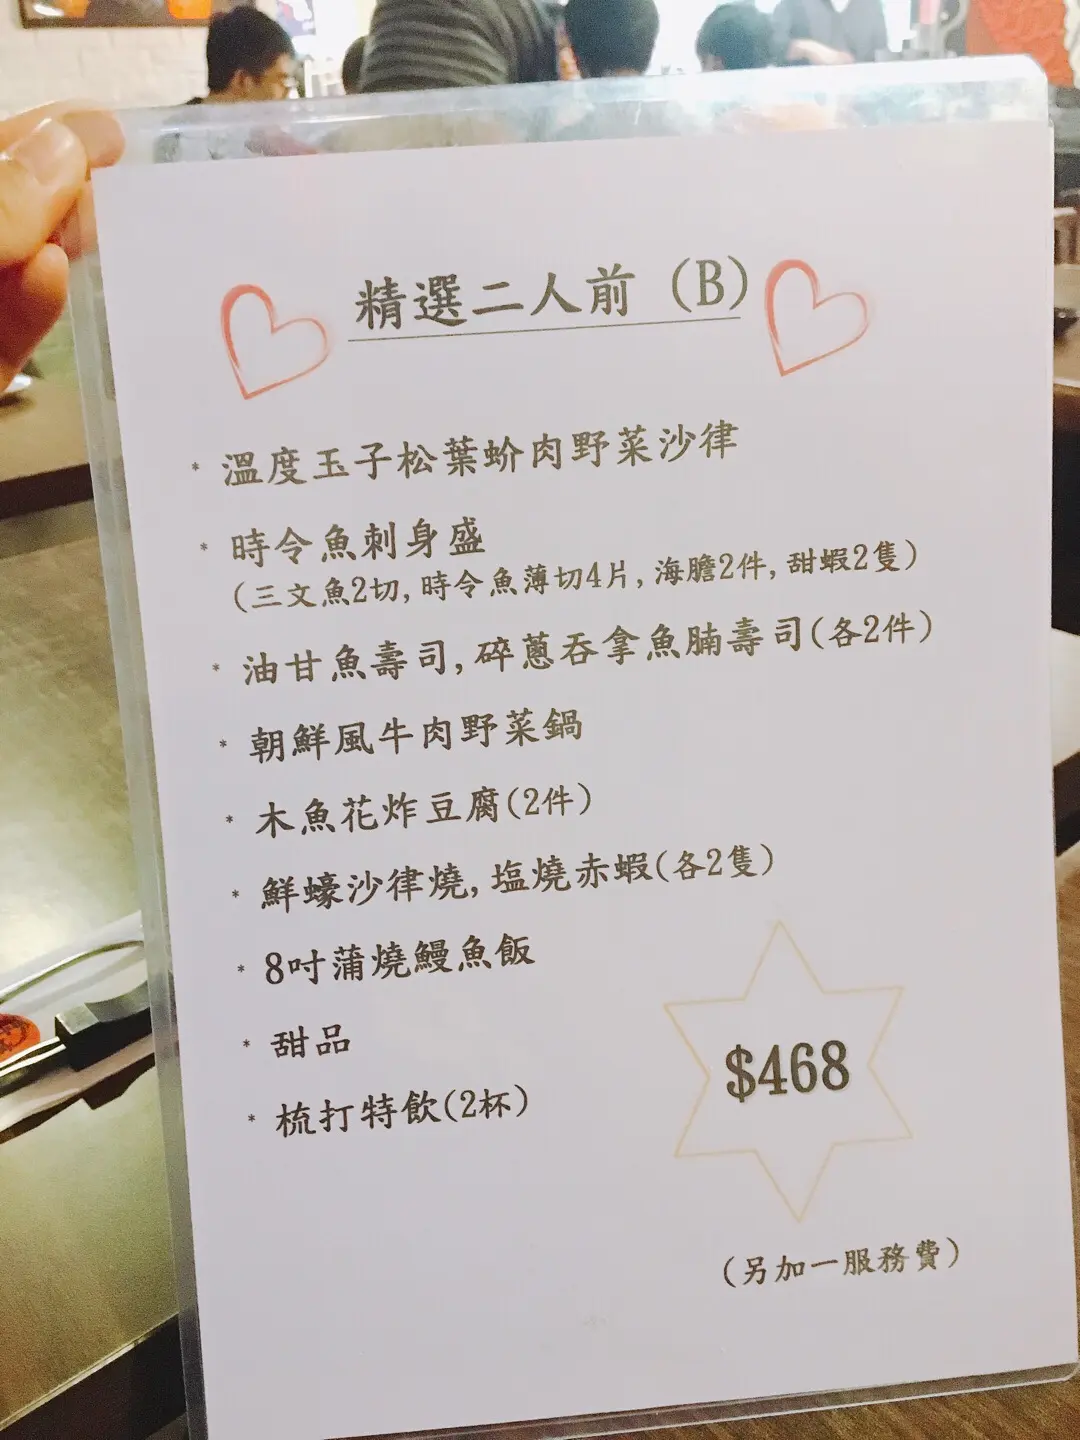 精選二人前 (B)
* 溫度玉子松葉蚧肉野菜沙律
* 時令魚刺身盛
(三文魚2切, 時令魚薄切4片, 海膽2件, 甜蝦2隻)
* 油甘魚壽司, 碎蔥吞拿魚腩壽司(各2件)
* 朝鮮風牛肉野菜鍋
* 木魚花炸豆腐(2件)
* 鮮蠔沙律燒, 塩燒赤蝦(各2隻)
* 8吋蒲燒鰻魚飯
* 甜品
* 梳打特飲(2杯)
$468
(另加一服務費)